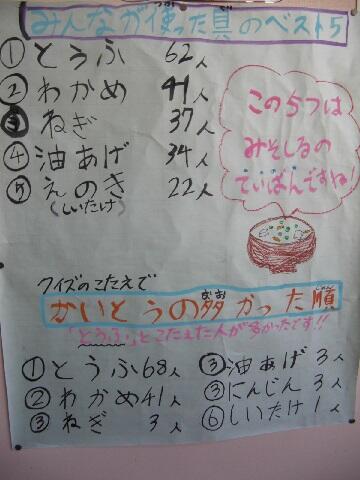 みんなが使った具のベスト5
① とうふ 62人
② わかめ 41人
③ ねぎ 37人
④ 油あげ 34人
⑤ えのき 22人
(しいたけ)
この5つは
みそしるの
ていばんですね!
クイズのこたえで
かいとうの多かった順
「とうふ」とこたえた人が多かったです!!
① とうふ 68人
② わかめ 41人
③ ねぎ 3人
③ 油あげ 3人
③ にんじん 3人
⑥ しいたけ 1人